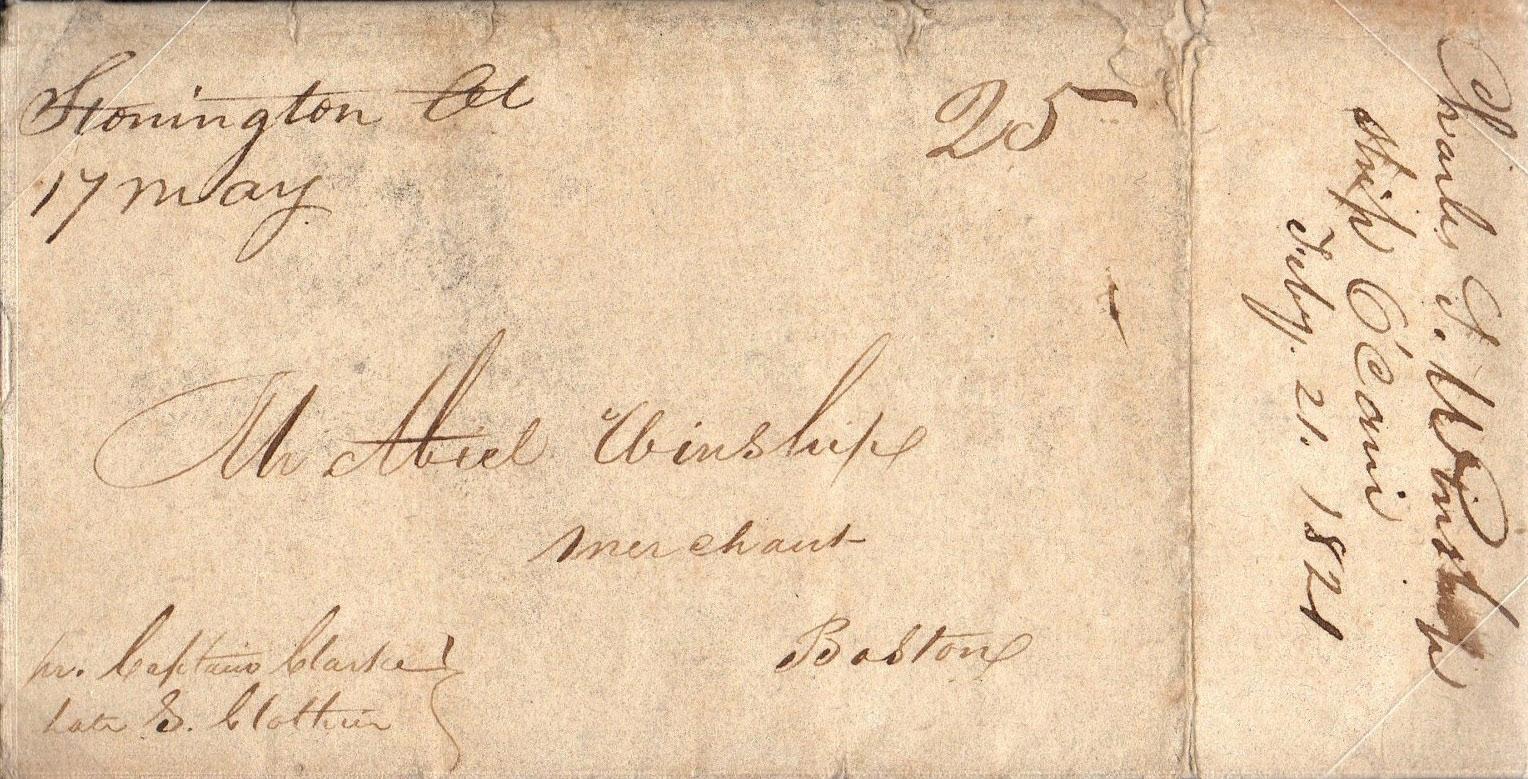 Stonington Ct
25
17 May
Mr Abiel Winship
Merchant
Boston
pr. Captain Clarke
late S. Clothier
Charles L. Winship
Ship O'Cain
July. 21. 1821